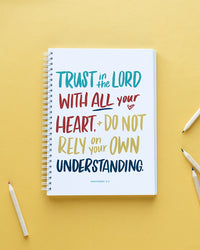 TRUST in the LORD
WITH ALL your
HEART, + DO NOT
RELY on your OWN
UNDERSTANDING.
PROVERBS 3:5